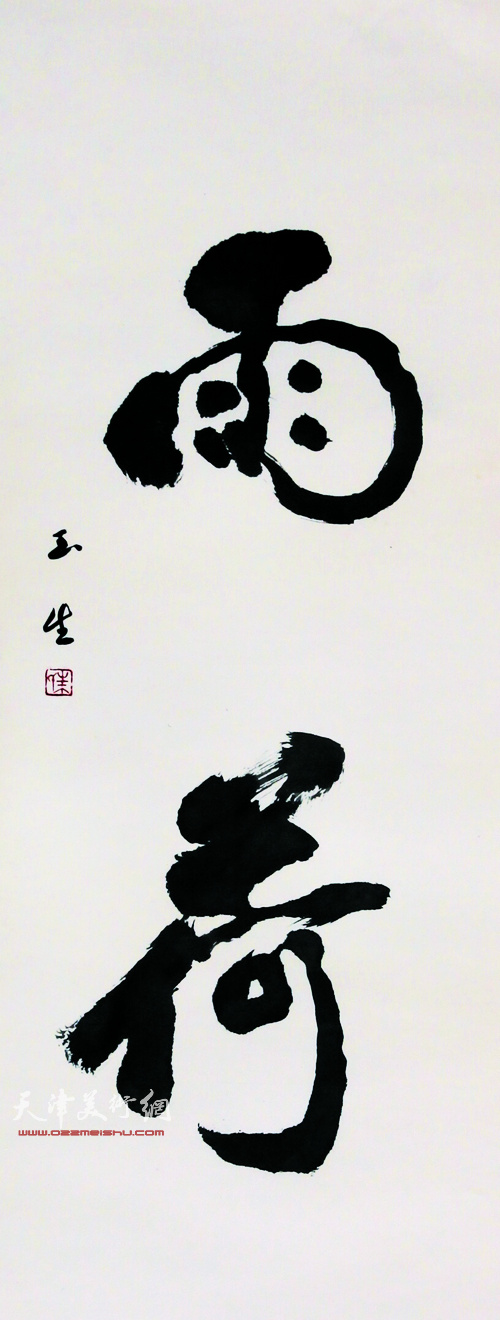 雨荷
玉生
天津美术網
www.022meishu.com